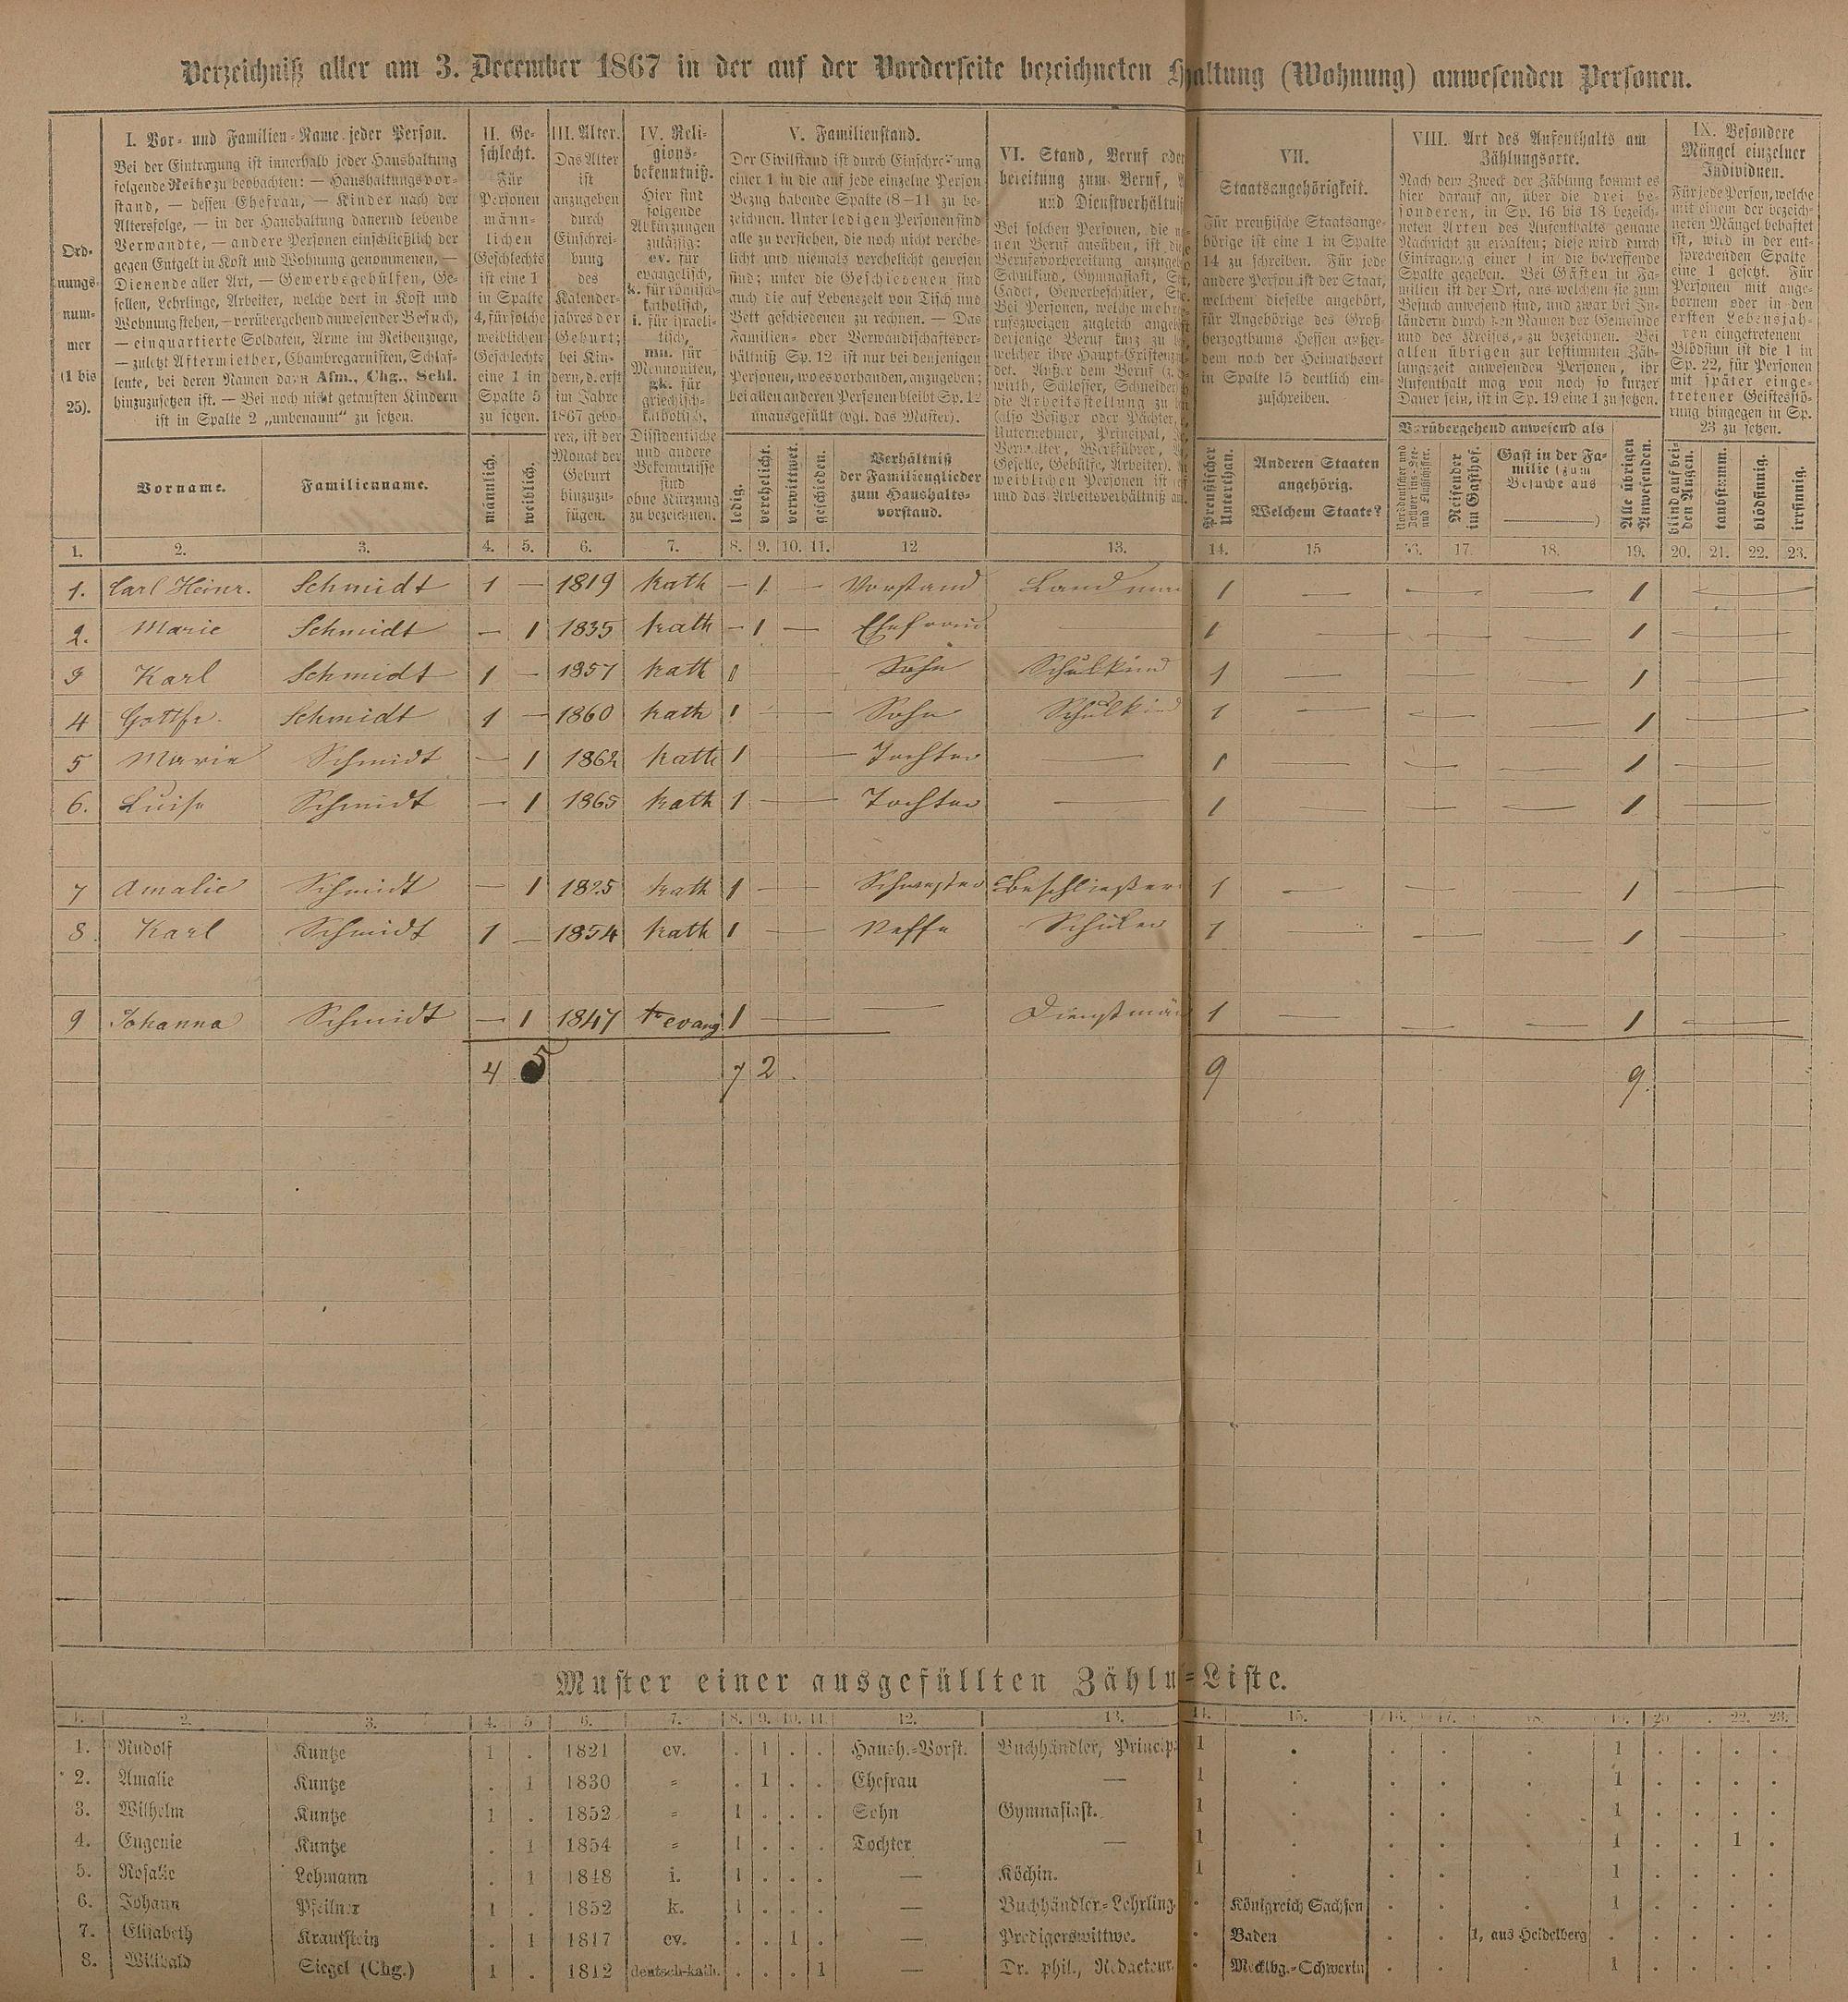 Verzeichniß aller am 3. December 1867 in der auf der Vorderseite bezeichneten altung (Wohnung) anwesenden Personen.
Ord-
nungs-
num-
mer
(1 bis
25).
I. Vor- und Familien-Name jeder Person.
Bei der Eintragung ist innerhalb jeder Haushaltung
folgende Reihe zu beobachten: — Haushaltungsvor-
stand, — dessen Ehefrau, — Kinder nach der
Altersfolge, — in der Haushaltung dauernd lebende
Verwandte, — andere Personen einschließlich der
gegen Entgelt in Kost und Wohnung genommenen, —
Dienende aller Art, — Gewerbsgehülfen, Ge-
sellen, Lehrlinge, Arbeiter, welche dort in Kost und
Wohnung stehen, — vorübergehend anwesender Besuch,
— einquartierte Soldaten, Arme im Reihenzuge,
— zuletzt Aftermiether, Chambregarnisten, Schlaf-
leute, bei deren Namen dann Afm., Chg., Schl.
hinzuzusetzen ist. — Bei noch nicht getauften Kindern
ist in Spalte 2 „unbenannt“ zu setzen.
Vorname.
Familienname.
II. Ge-
schlecht.
Für
Personen
männ-
lichen
Geschlechts
ist eine 1
in Spalte
4, für solche
weiblichen
Geschlechts
eine 1 in
Spalte 5
zu setzen.
männlich.
weiblich.
III. Alter.
Das Alter
ist
anzugeben
durch
Einschrei-
bung
des
Kalender-
jahres der
Geburt;
bei Kin-
dern, d. erst
im Jahre
1867 gebo-
ren, ist der
Monat der
Geburt
hinzuzu-
fügen.
IV. Reli-
gions-
bekenntniß.
Hier sind
folgende
Abkürzungen
zulässig:
ev. für
evangelisch,
k. für römisch-
katholisch,
i. für israeli-
tisch,
mn. für
Mennoniten,
gk. für
griechisch-
katholisch.
Dissidentische
und andere
Bekenntnisse
sind
ohne Kürzung
zu bezeichnen.
V. Familienstand.
Der Civilstand ist durch Einschreibung
einer 1 in die auf jede einzelne Person
Bezug habende Spalte (8–11) zu be-
zeichnen. Unter ledigen Personen sind
alle zu verstehen, die noch nicht verehe-
licht und niemals verehelicht gewesen
sind; unter die Geschiedenen sind
auch die auf Lebenszeit von Tisch und
Bett geschiedenen zu rechnen. — Das
Familien- oder Verwandtschaftsver-
hältniß Sp. 12 ist nur bei denjenigen
Personen, wo es vorhanden, anzugeben;
bei allen anderen Personen bleibt Sp. 12
unausgefüllt (vgl. das Muster).
ledig.
verehelicht.
verwittwet.
geschieden.
Verhältniß
der Familienglieder
zum Haushalts-
vorstand.
VI. Stand, Beruf oder
bereitung zum Beruf,
und Dienstverhältniß
Bei solchen Personen, die
nen Beruf ausüben, ist
Berufsvorbereitung
Schulkind, Gymnasiast,
Cadet, Gewerbeschüler,
Bei Personen, welche mehre
rufszweigen zugleich
derjenige Beruf kurz zu
welcher ihre Haupt-Existenz
det. Außer dem Beruf
wirth, Schlosser, Schneider
die Arbeitsstellung zu
(also Besitzer oder Pächter,
Unternehmer, Principal,
Verwalter, Werkführer,
Geselle, Gehülfe, Arbeiter).
weiblichen Personen ist
und das Arbeitsverhältniß
VII.
Staatsangehörigkeit.
Für preußische Staatsange-
hörige ist eine 1 in Spalte
14 zu schreiben. Für jede
andere Person ist der Staat,
welchem dieselbe angehört,
für Angehörige des Groß-
herzogthums Hessen außer-
dem noch der Heimathsort
in Spalte 15 deutlich ein-
zuschreiben.
Preußischer
Unterthan.
Anderen Staaten
angehörig.
Welchem Staate?
VIII. Art des Aufenthalts am
Zählungsorte.
Nach dem Zweck der Zählung kommt es
hier darauf an, über die drei be-
sonderen, in Sp. 16 bis 18 bezeich-
neten Arten des Aufenthalts genaue
Nachricht zu erhalten; diese wird durch
Eintragung einer 1 in die betreffende
Spalte gegeben. Bei Gästen in Fa-
milien ist der Ort, aus welchem sie zum
Besuch anwesend sind, und zwar bei In-
ländern durch den Namen der Gemeinde
und des Kreises, zu bezeichnen. Bei
allen übrigen zur bestimmten Zäh-
lungszeit anwesenden Personen, ihr
Aufenthalt mag von noch so kurzer
Dauer sein, ist in Sp. 19 eine 1 zu setzen.
Vorübergehend anwesend als
Reisender
im Gasthof.
Gast in der Fa-
milie (zum
Besuche aus
)
Alle übrigen
Anwesenden.
IX. Besondere
Mängel einzelner
Individuen.
Für jede Person, welche
mit einem der bezeich-
neten Mängel behaftet
ist, wird in der ent-
sprechenden Spalte
eine 1 gesetzt. Für
Personen mit ange-
bornem oder in den
ersten Lebensjah-
ren eingetretenem
Blödsinn ist die 1 in
Sp. 22, für Personen
mit später einge-
tretener Geistesstö-
rung hingegen in Sp.
23 zu setzen.
blind auf bei-
den Augen.
taubstumm.
blödsinnig.
irrsinnig.
1. 2. 3. 4. 5. 6. 7. 8. 9. 10. 11. 12. 13. 14. 15 16. 17. 18. 19. 20. 21. 22. 23.
1. Carl Heinr. Schmidt 1 — 1819 kath — 1 — Vorstand Landman 1 — — — 1 —
2. Marie Schmidt — 1 1835 kath — 1 — Ehefrau — 1 — — — 1 —
3 Karl Schmidt 1 — 1857 kath 1 — Sohn Schulkind 1 — — — 1 —
4 Gottfr. Schmidt 1 — 1860 kath 1 — Sohn Schulkind 1 — — — 1 —
5 Marie Schmidt — 1 1862 kath 1 — Tochter — 1 — — — 1 —
6. Luise Schmidt — 1 1865 kath 1 — Tochter — 1 — — — 1 —
7 Amalie Schmidt — 1 1825 kath 1 — Schwester Beschließer 1 — — — 1 —
8. Karl Schmidt 1 — 1854 kath 1 — Neffe Schüler 1 — — — 1 —
9 Johanna Schmidt — 1 1847 evang 1 — — Dienstmä 1 — — — 1 —
4 5 7 2 9 9.
Muster einer ausgefüllten Zählu-Liste.
1. 2. 3. 4. 5 6. 7. 8. 9. 10. 11 12. 13. 14. 15. 16. 17. 18. 19. 20 . 22. 23.
1. Rudolf Kuntze 1 . 1821 ev. . 1 . . Haush.-Vorst. Buchhändler, Princip. 1 . . . . 1 . . . .
2. Amalie Kuntze . 1 1830 = . 1 . . Ehefrau — 1 . . . . 1 . . . .
3. Wilhelm Kuntze 1 . 1852 = 1 . . . Sohn Gymnasiast. 1 . . . . 1 . . . .
4. Eugenie Kuntze . 1 1854 = 1 . . . Tochter — 1 . . . . 1 . . 1 .
5. Rosalie Lehmann . 1 1848 i. 1 . . . — Köchin. 1 . . . . 1 . . . .
6. Johann Pfeilner 1 . 1852 k. 1 . . . — Buchhändler-Lehrling. . Königreich Sachsen . . . 1 . . . .
7. Elisabeth Krautstein . 1 1817 ev. . . 1 . — Predigerswittwe. . Baden . . 1, aus Heidelberg . . . . .
8. Willibald Siegel (Chg.) 1 . 1812 deutsch-kath. . . . 1 — Dr. phil., Redacteur. . Mecklbg.-Schwerin . . . 1 . . . .